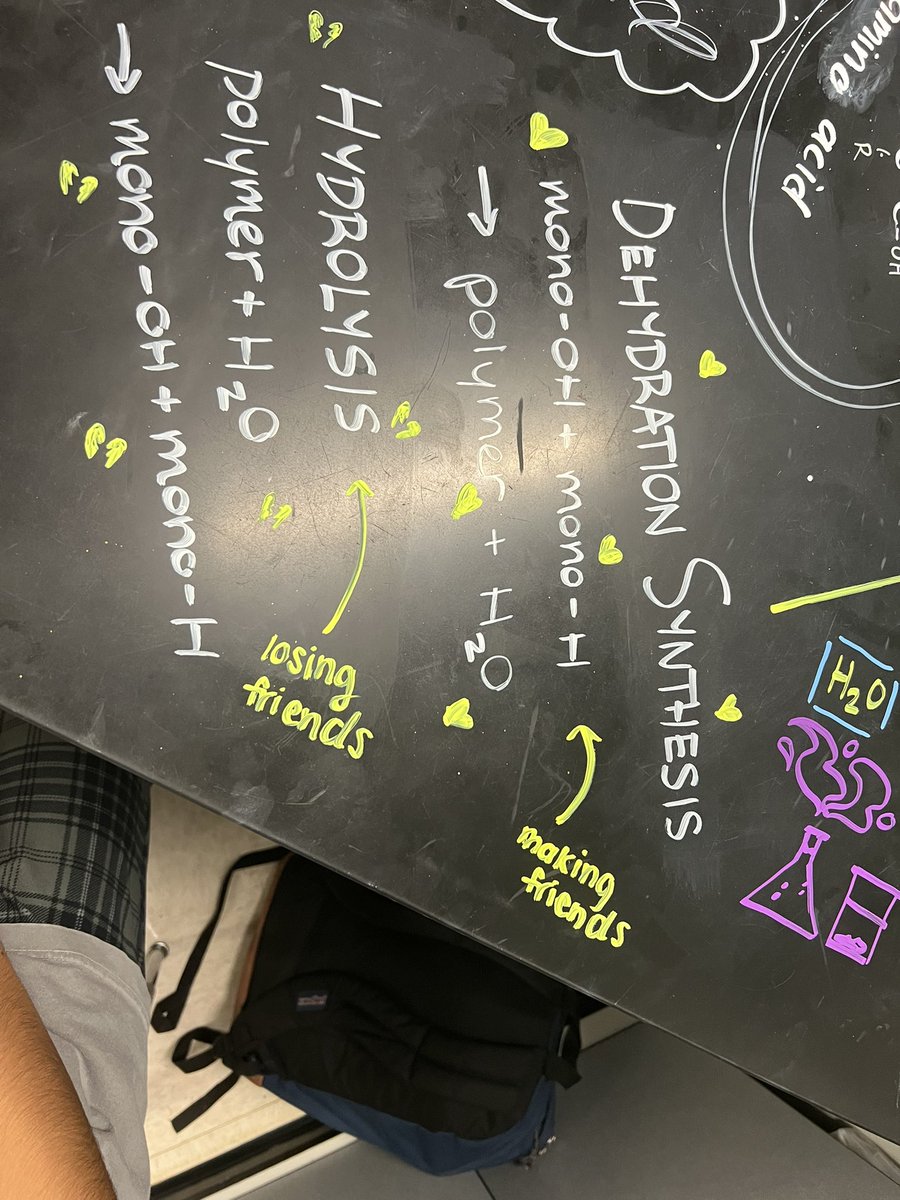 amino acid
R
DEHYDRATION SYNTHESIS
mono-OH + mono-H
→ polymer + H₂O
making friends
HYDROLYSIS
polymer + H₂O
→ mono-OH + mono-H
losing friends
H₂O